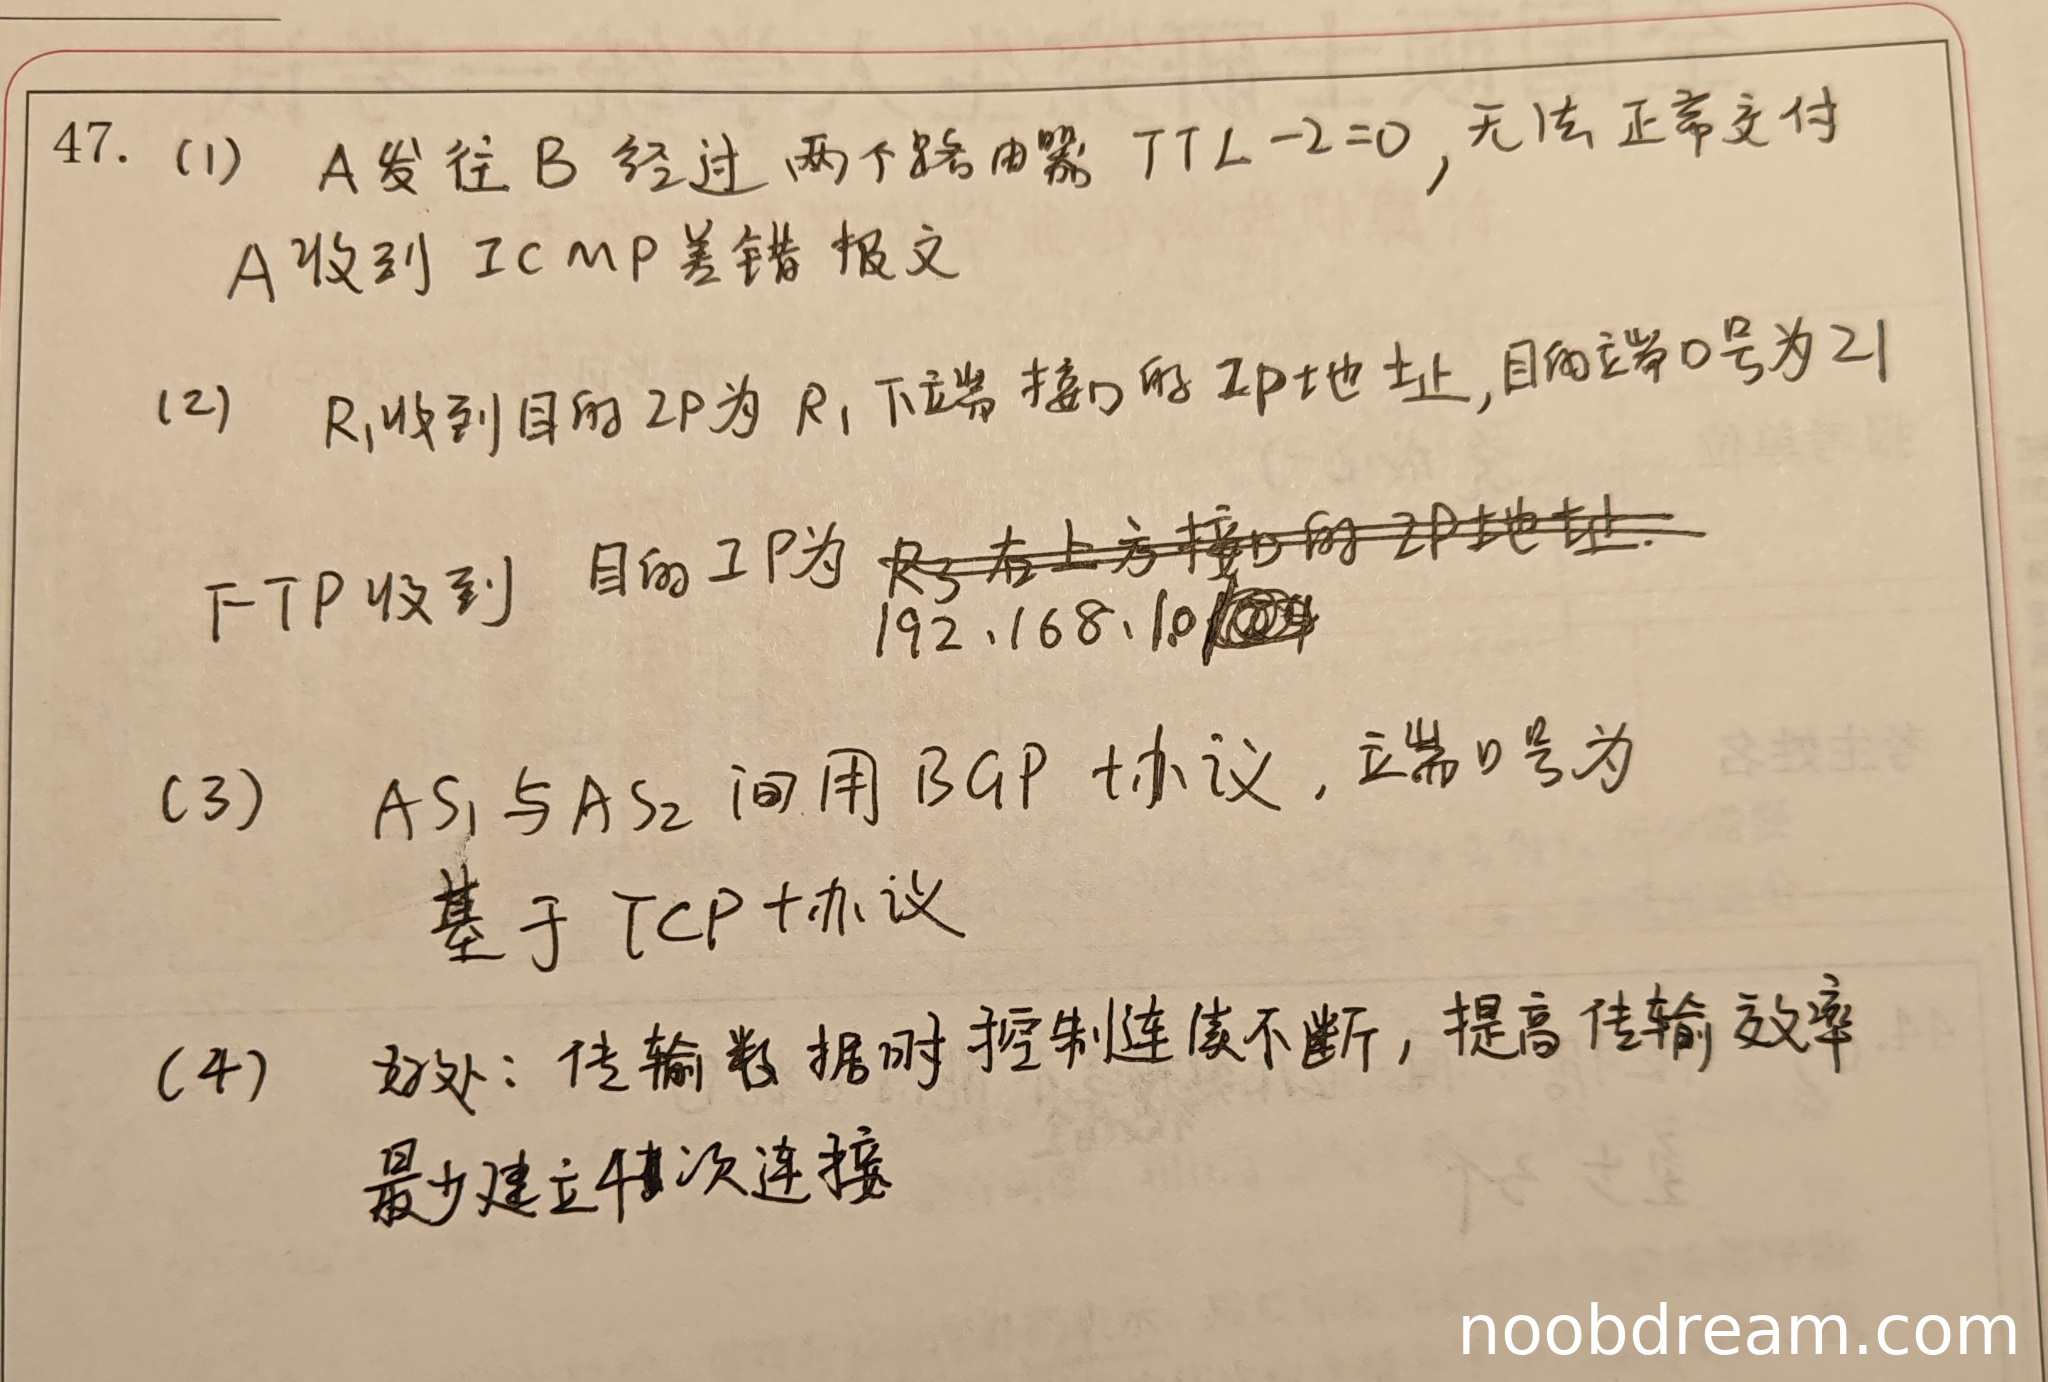 47. (1) A发往B 经过两个路由器 TTL-2=0, 无法正常交付
A收到 ICMP差错报文
(2) R1收到目的IP为 R1下端接口的IP地址,目的端口号为21
FTP收到 目的IP为 R3右上方接口的IP地址.
192.168.1.0/
(3) AS1与AS2间用BGP协议, 端口号为
基于TCP协议
(4) 好处: 传输数据时控制连续不断, 提高传输效率
最少建立4次连接
noobdream.com